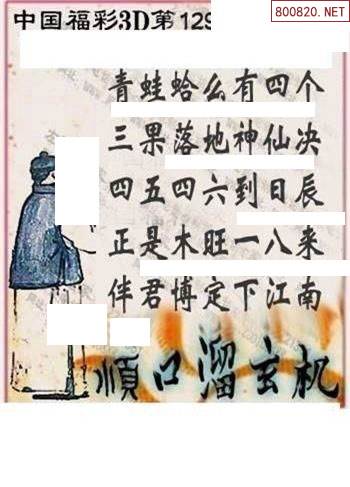 800820.NET
中国福彩3D第129
青蛙蛤么有四个
三果落地神仙决
四五四六到日辰
正是木旺一八来
伴君博定下江南
顺口溜玄机